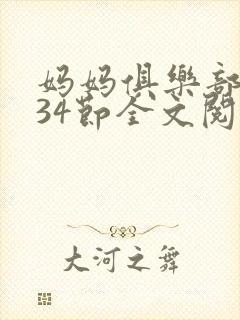 妈妈俱樂部
34節全文閱
大河之舞